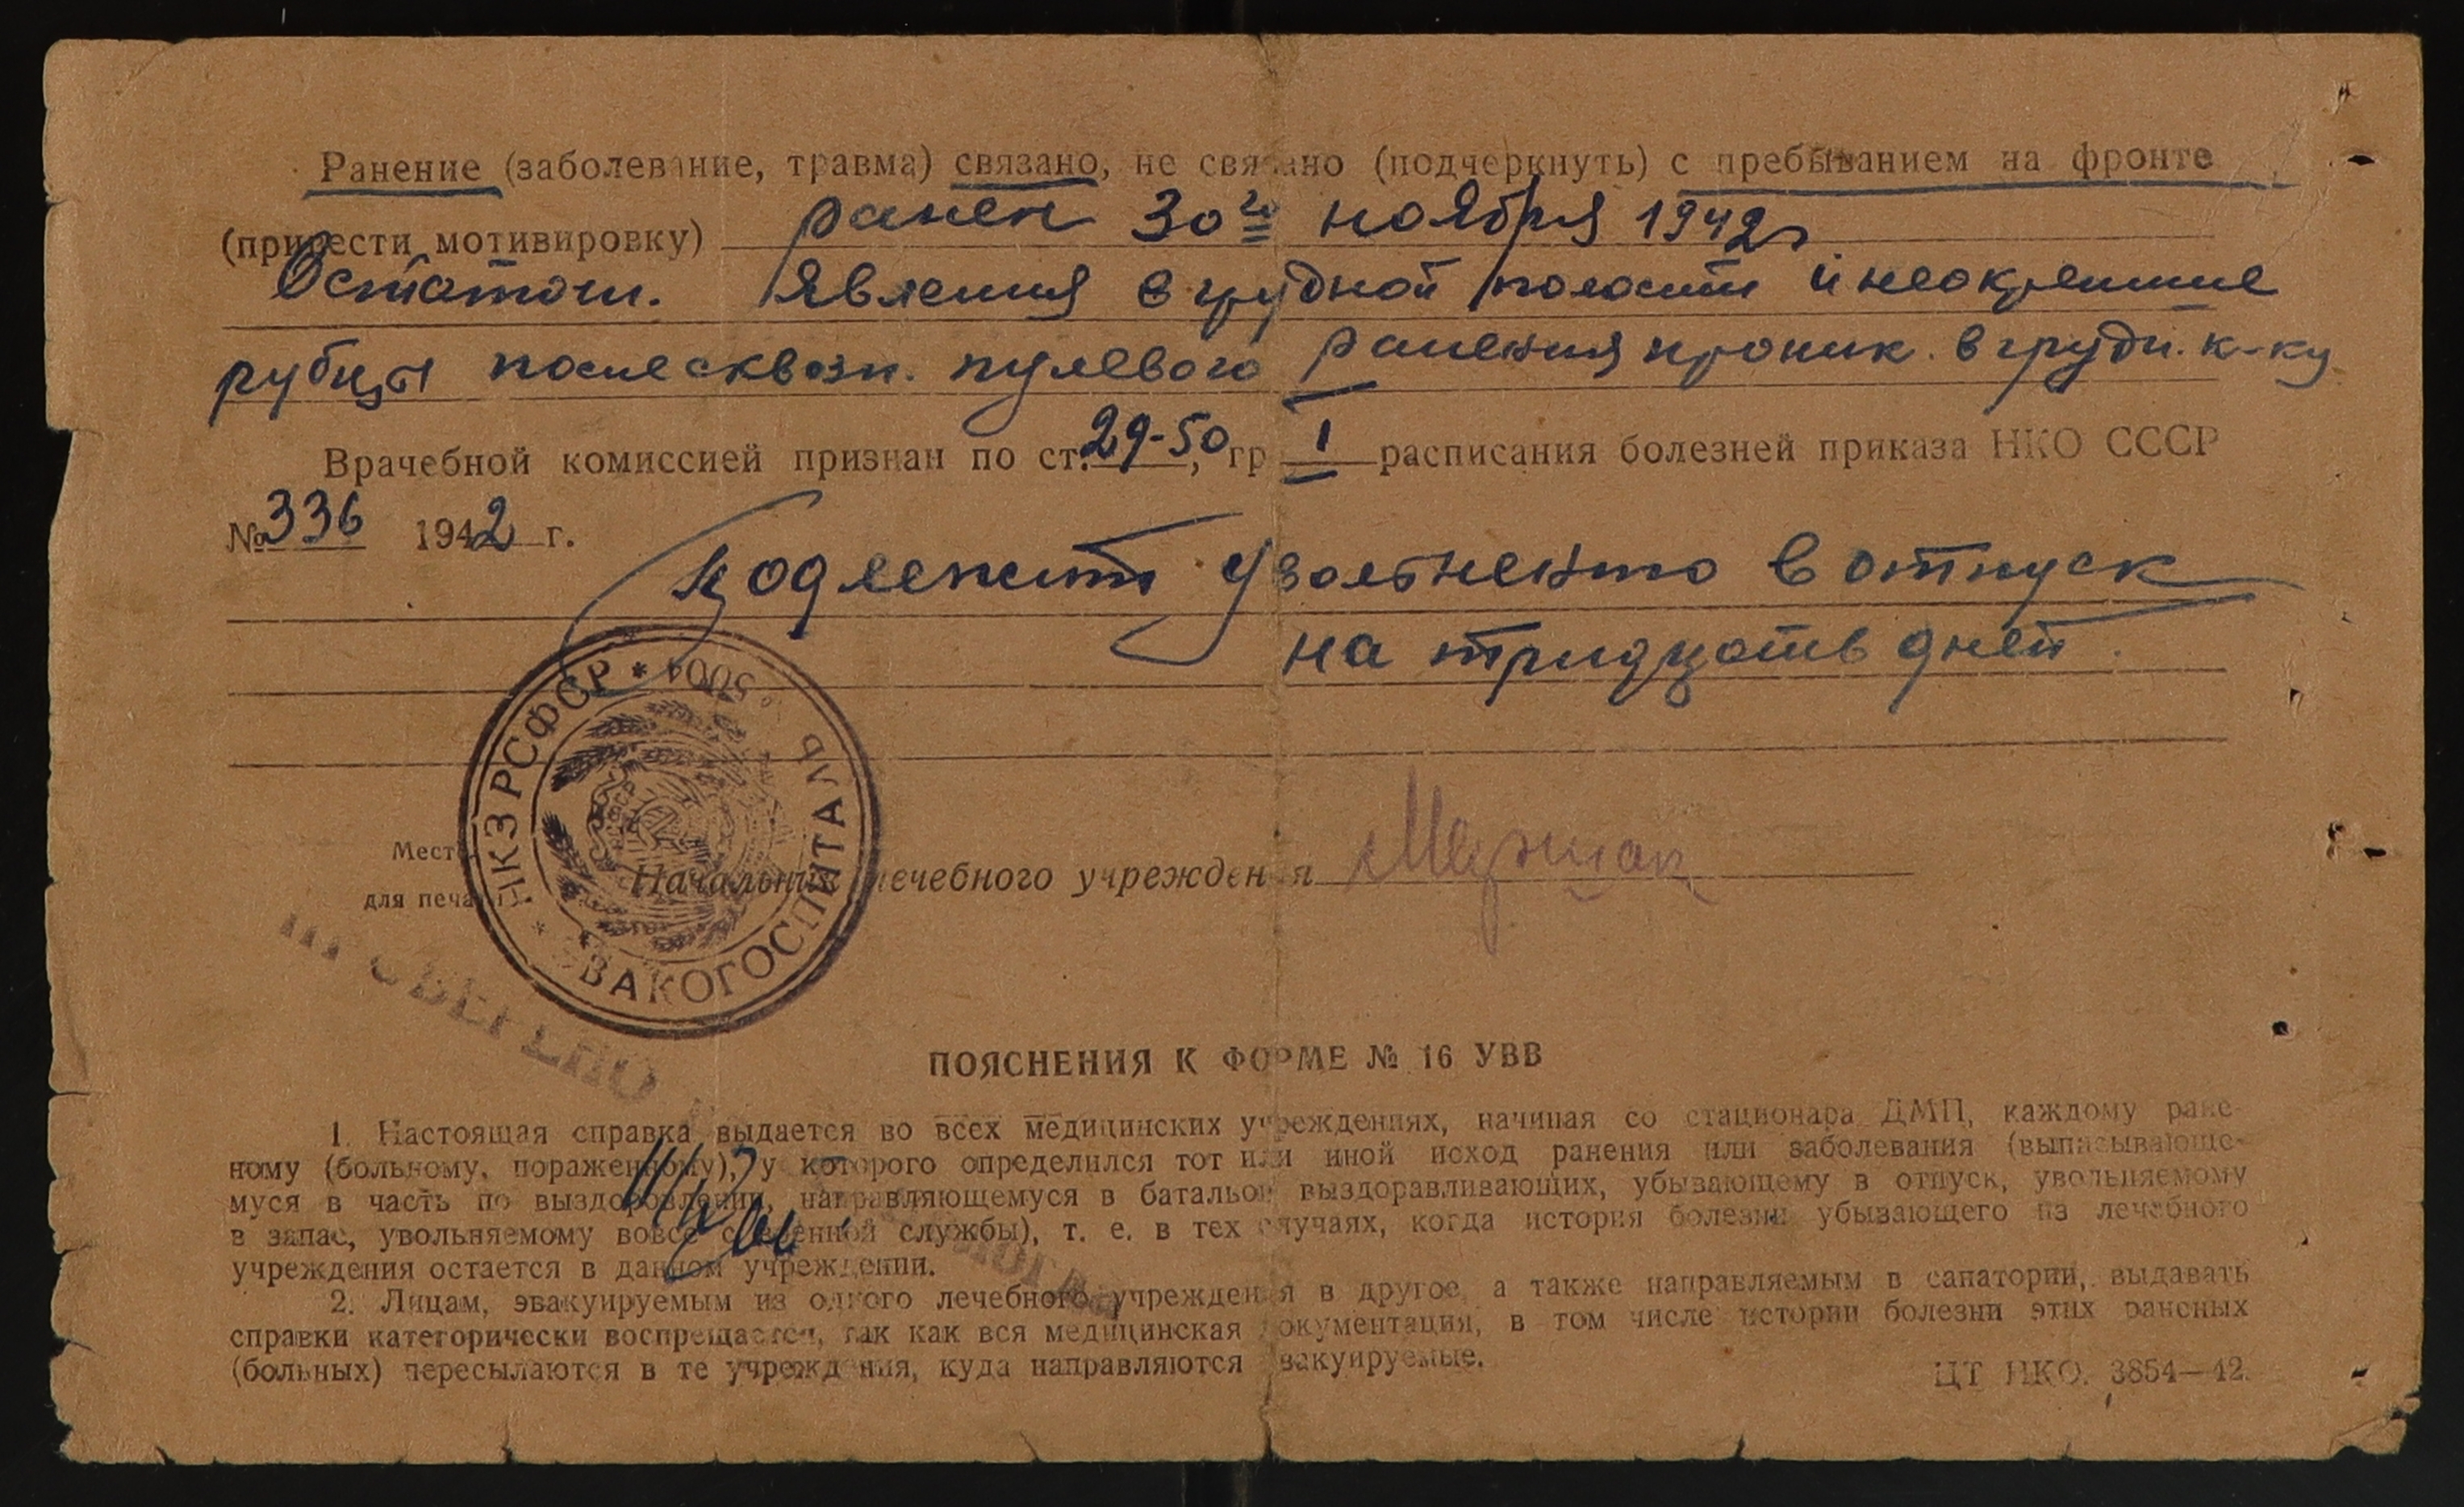 Ранение (заболевание, травма) связано, не связано (подчеркнуть) с пребыванием на фронте
(привести мотивировку) ранен 30го ноября 1942г
Остаточн. явления в грудной полости и неокрепшие
рубцы после сквозн. пулевого ранения проник. в грудн. к-ку
Врачебной комиссией признан по ст. 29-50, гр I расписания болезней приказа НКО СССР
№ 336 1942 г.
Подлежит увольнению в отпуск
на тридцать дней.
НКЗ РСФСР * 5004
* ЭВАКОГОСПИТАЛЬ
Место
для печати
Начальник лечебного учреждения
ПРОВЕРЕНО
ПОЯСНЕНИЯ К ФОРМЕ № 16 УВВ
1. Настоящая справка выдается во всех медицинских учреждениях, начиная со стационара ДМП, каждому ране-
ному (больному, пораженному), у которого определился тот или иной исход ранения или заболевания (выписывающе-
муся в часть по выздоровлении, направляющемуся в батальон выздоравливающих, убывающему в отпуск, увольняемому
в запас, увольняемому вовсе с военной службы), т. е. в тех случаях, когда история болезни убывающего из лечебного
учреждения остается в данном учреждении.
2. Лицам, эвакуируемым из одного лечебного учреждения в другое, а также направляемым в санатории, выдавать
справки категорически воспрещается, так как вся медицинская документация, в том числе истории болезни этих раненых
(больных) пересылаются в те учреждения, куда направляются эвакуируемые.
ЦТ НКО. 3854—42.